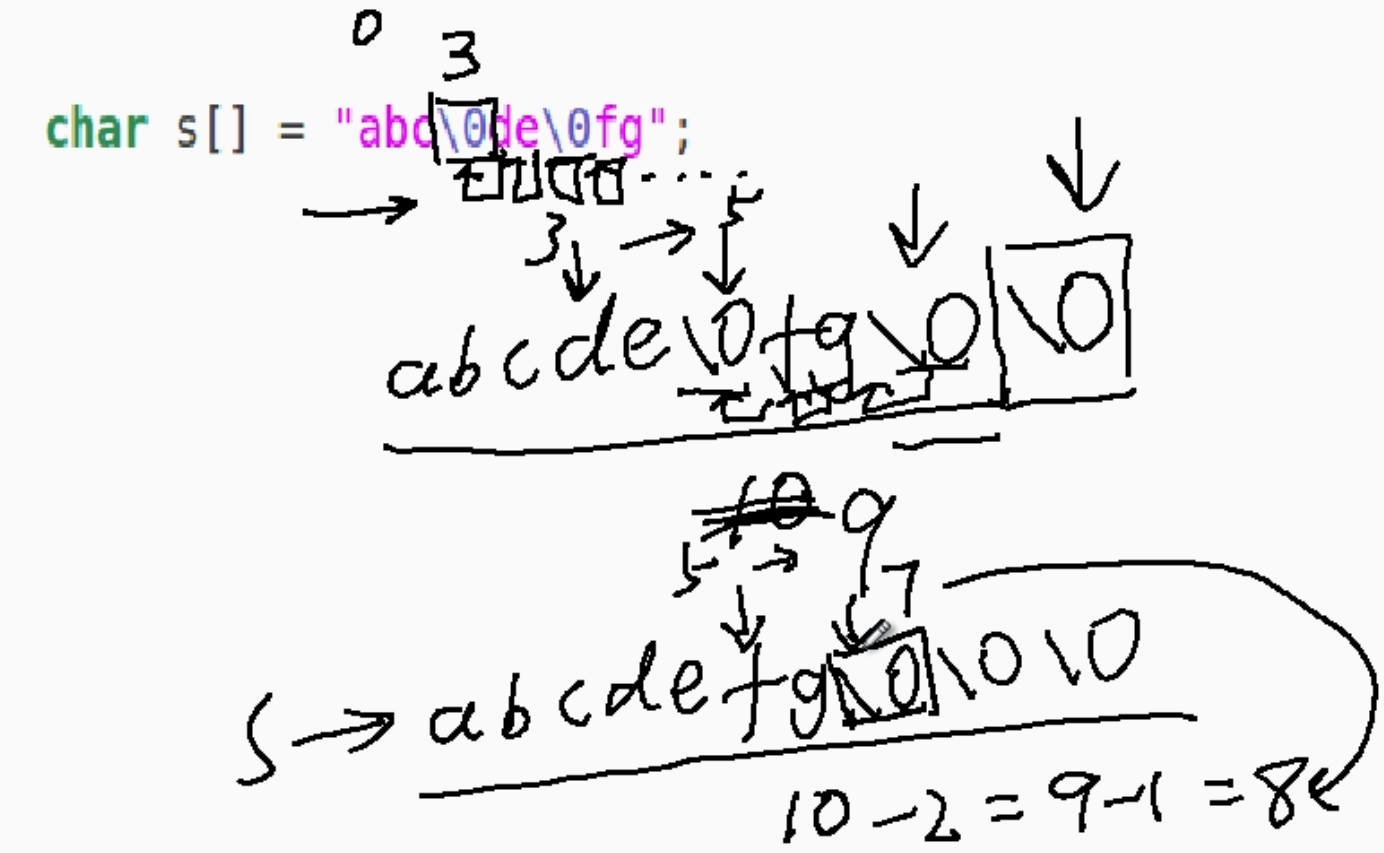 0 3
char s[] = "abc\0de\0fg";
3 5
abcde\0fg\0\0
10 9
5 7
S → abcdefg\0\0\0
10-2=9-1=8